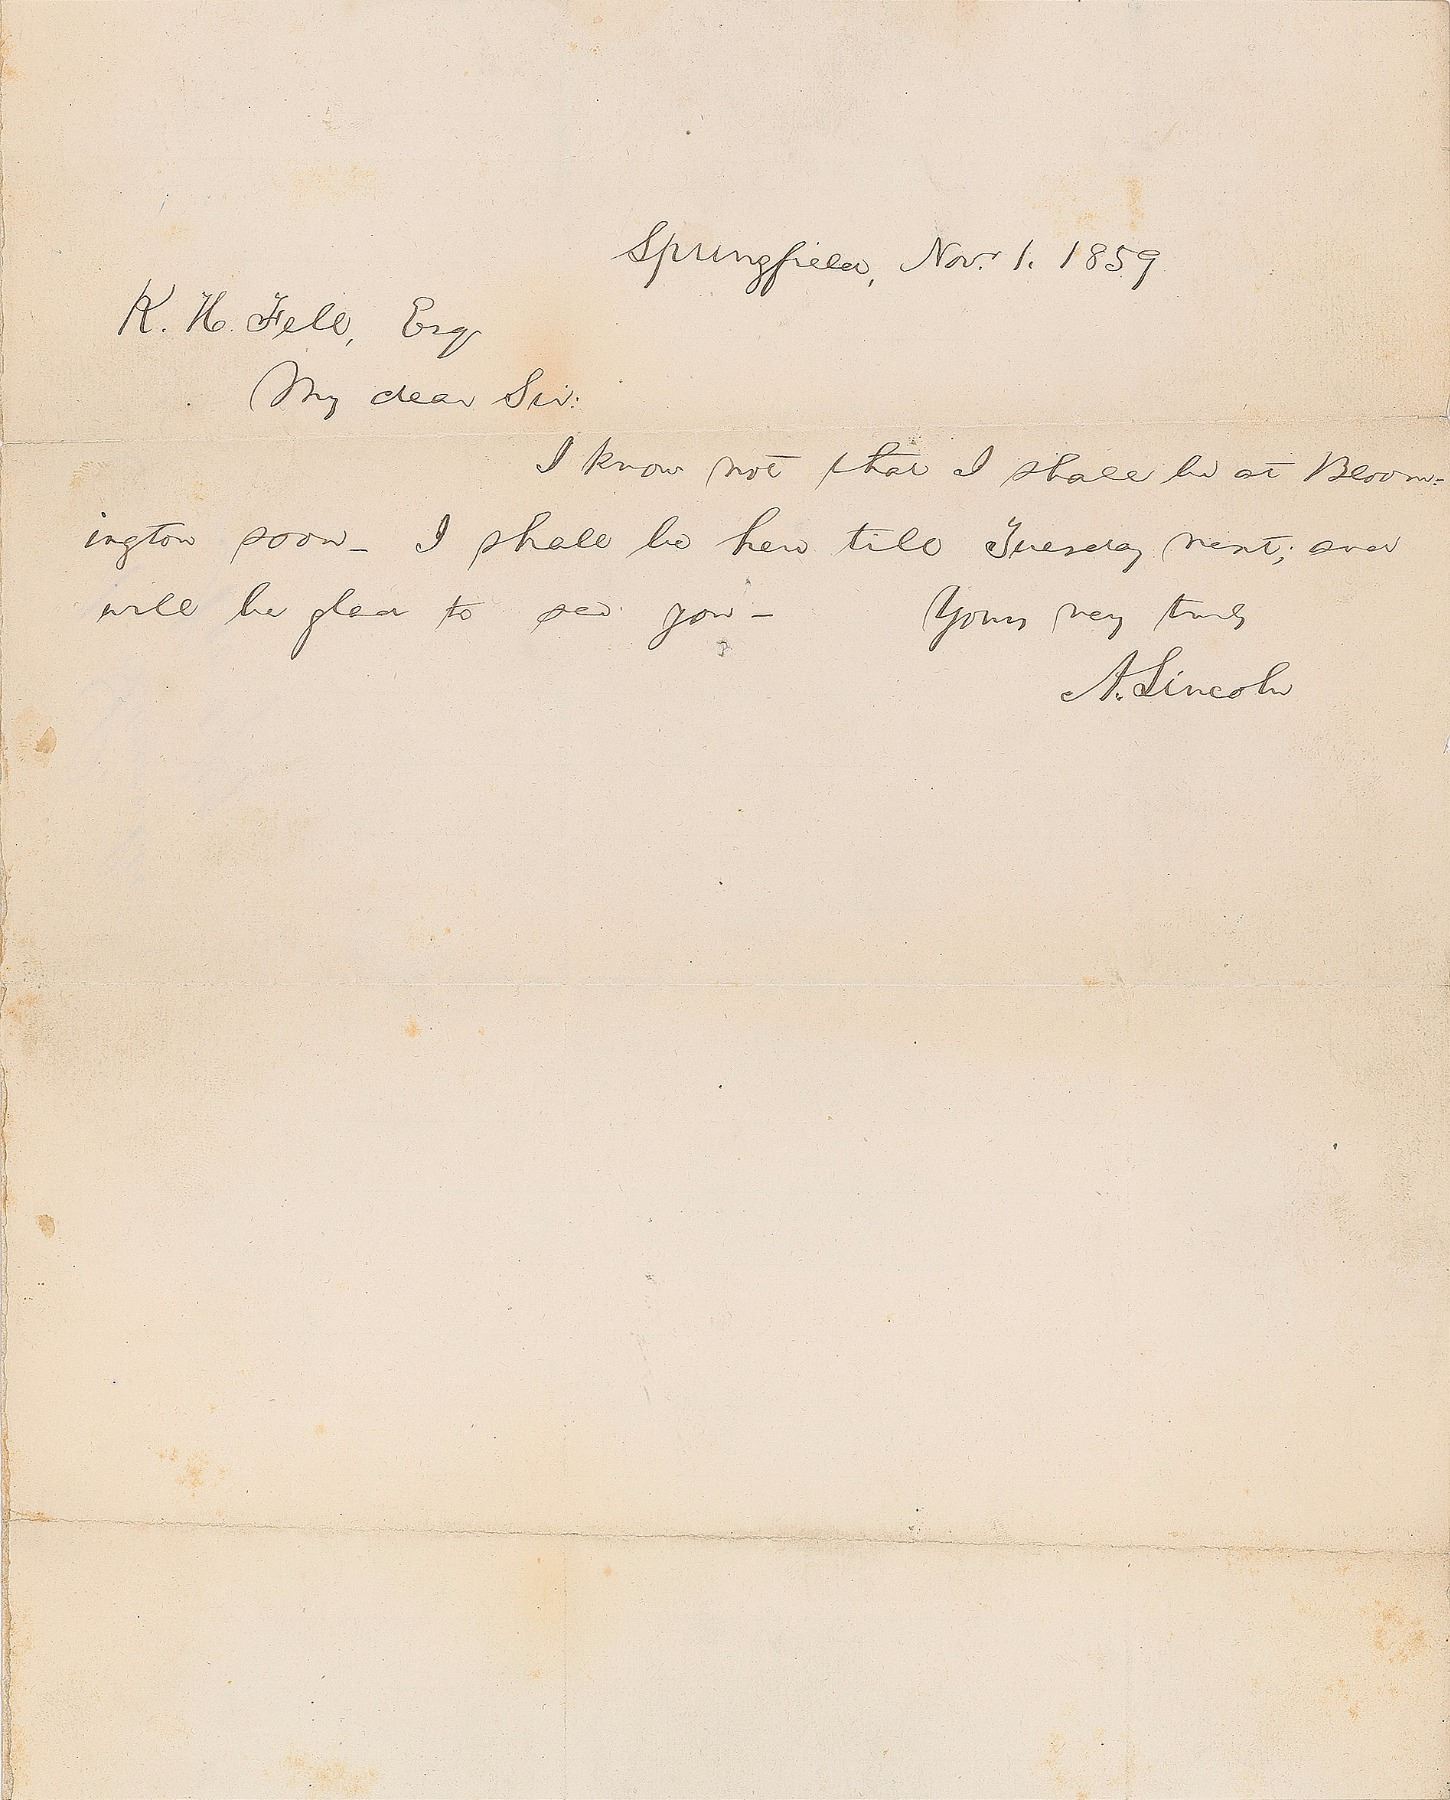 Springfield, Nov. 1. 1859
K. H. Fell, Esq
My dear Sir:
I know not that I shall be at Bloom-
ington soon— I shall be here till Tuesday next; and
will be glad to see you—   Yours very truly
A. Lincoln